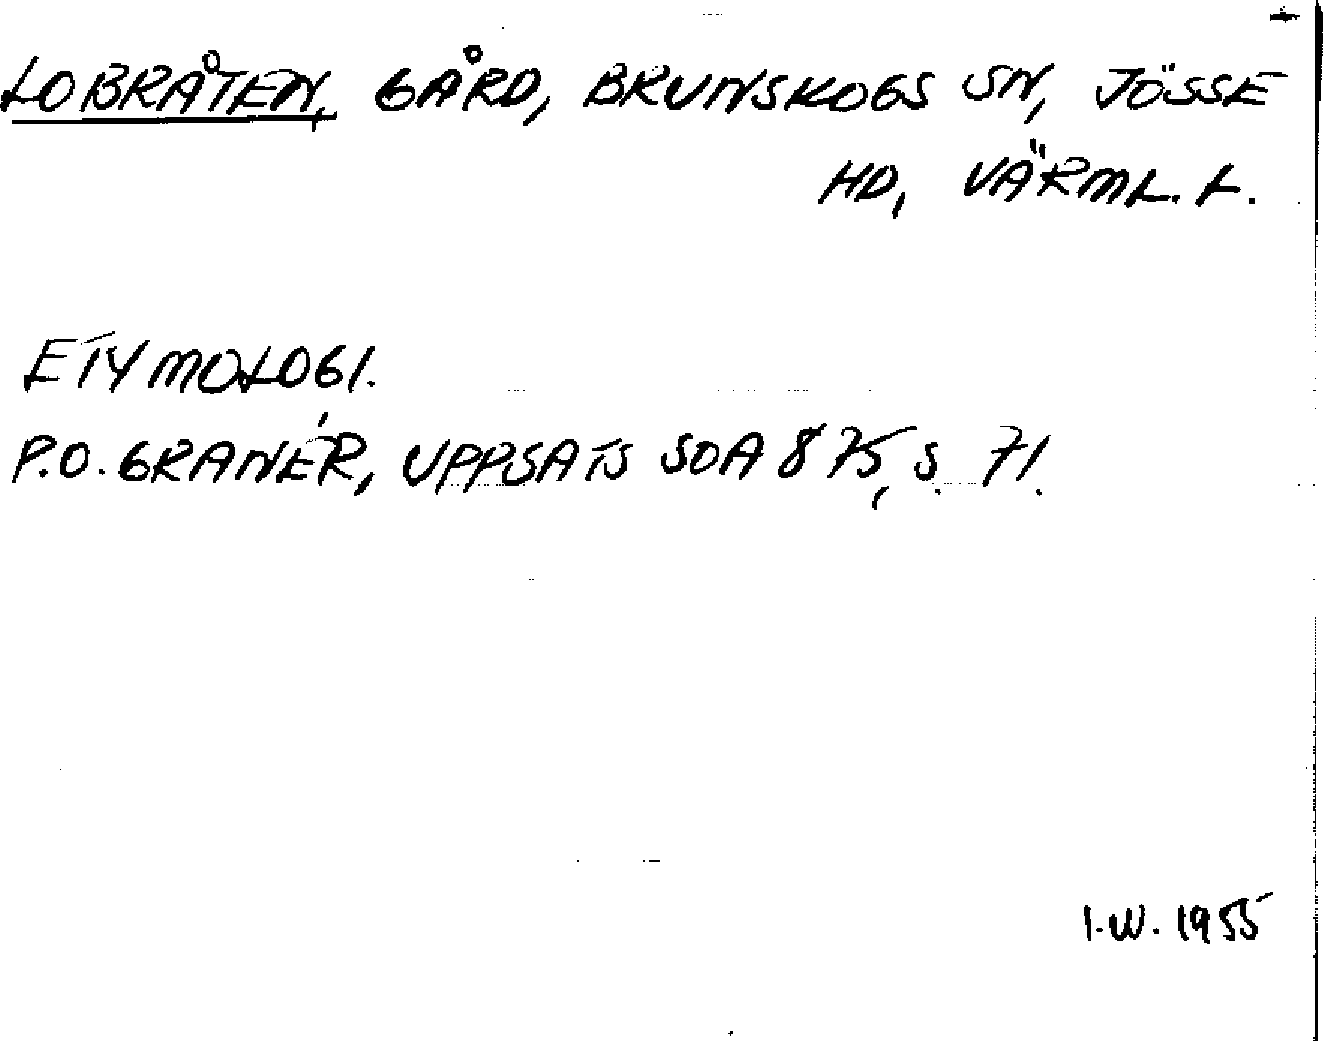 LOBRÅTEN, GÅRD, BRUNSKOGS SN, JÖSSE
HD, VÄRML. L.
ETYMOLOGI.
P.O. GRANÉR, UPPSATS SOA 875, S. 71.
I.W. 1955